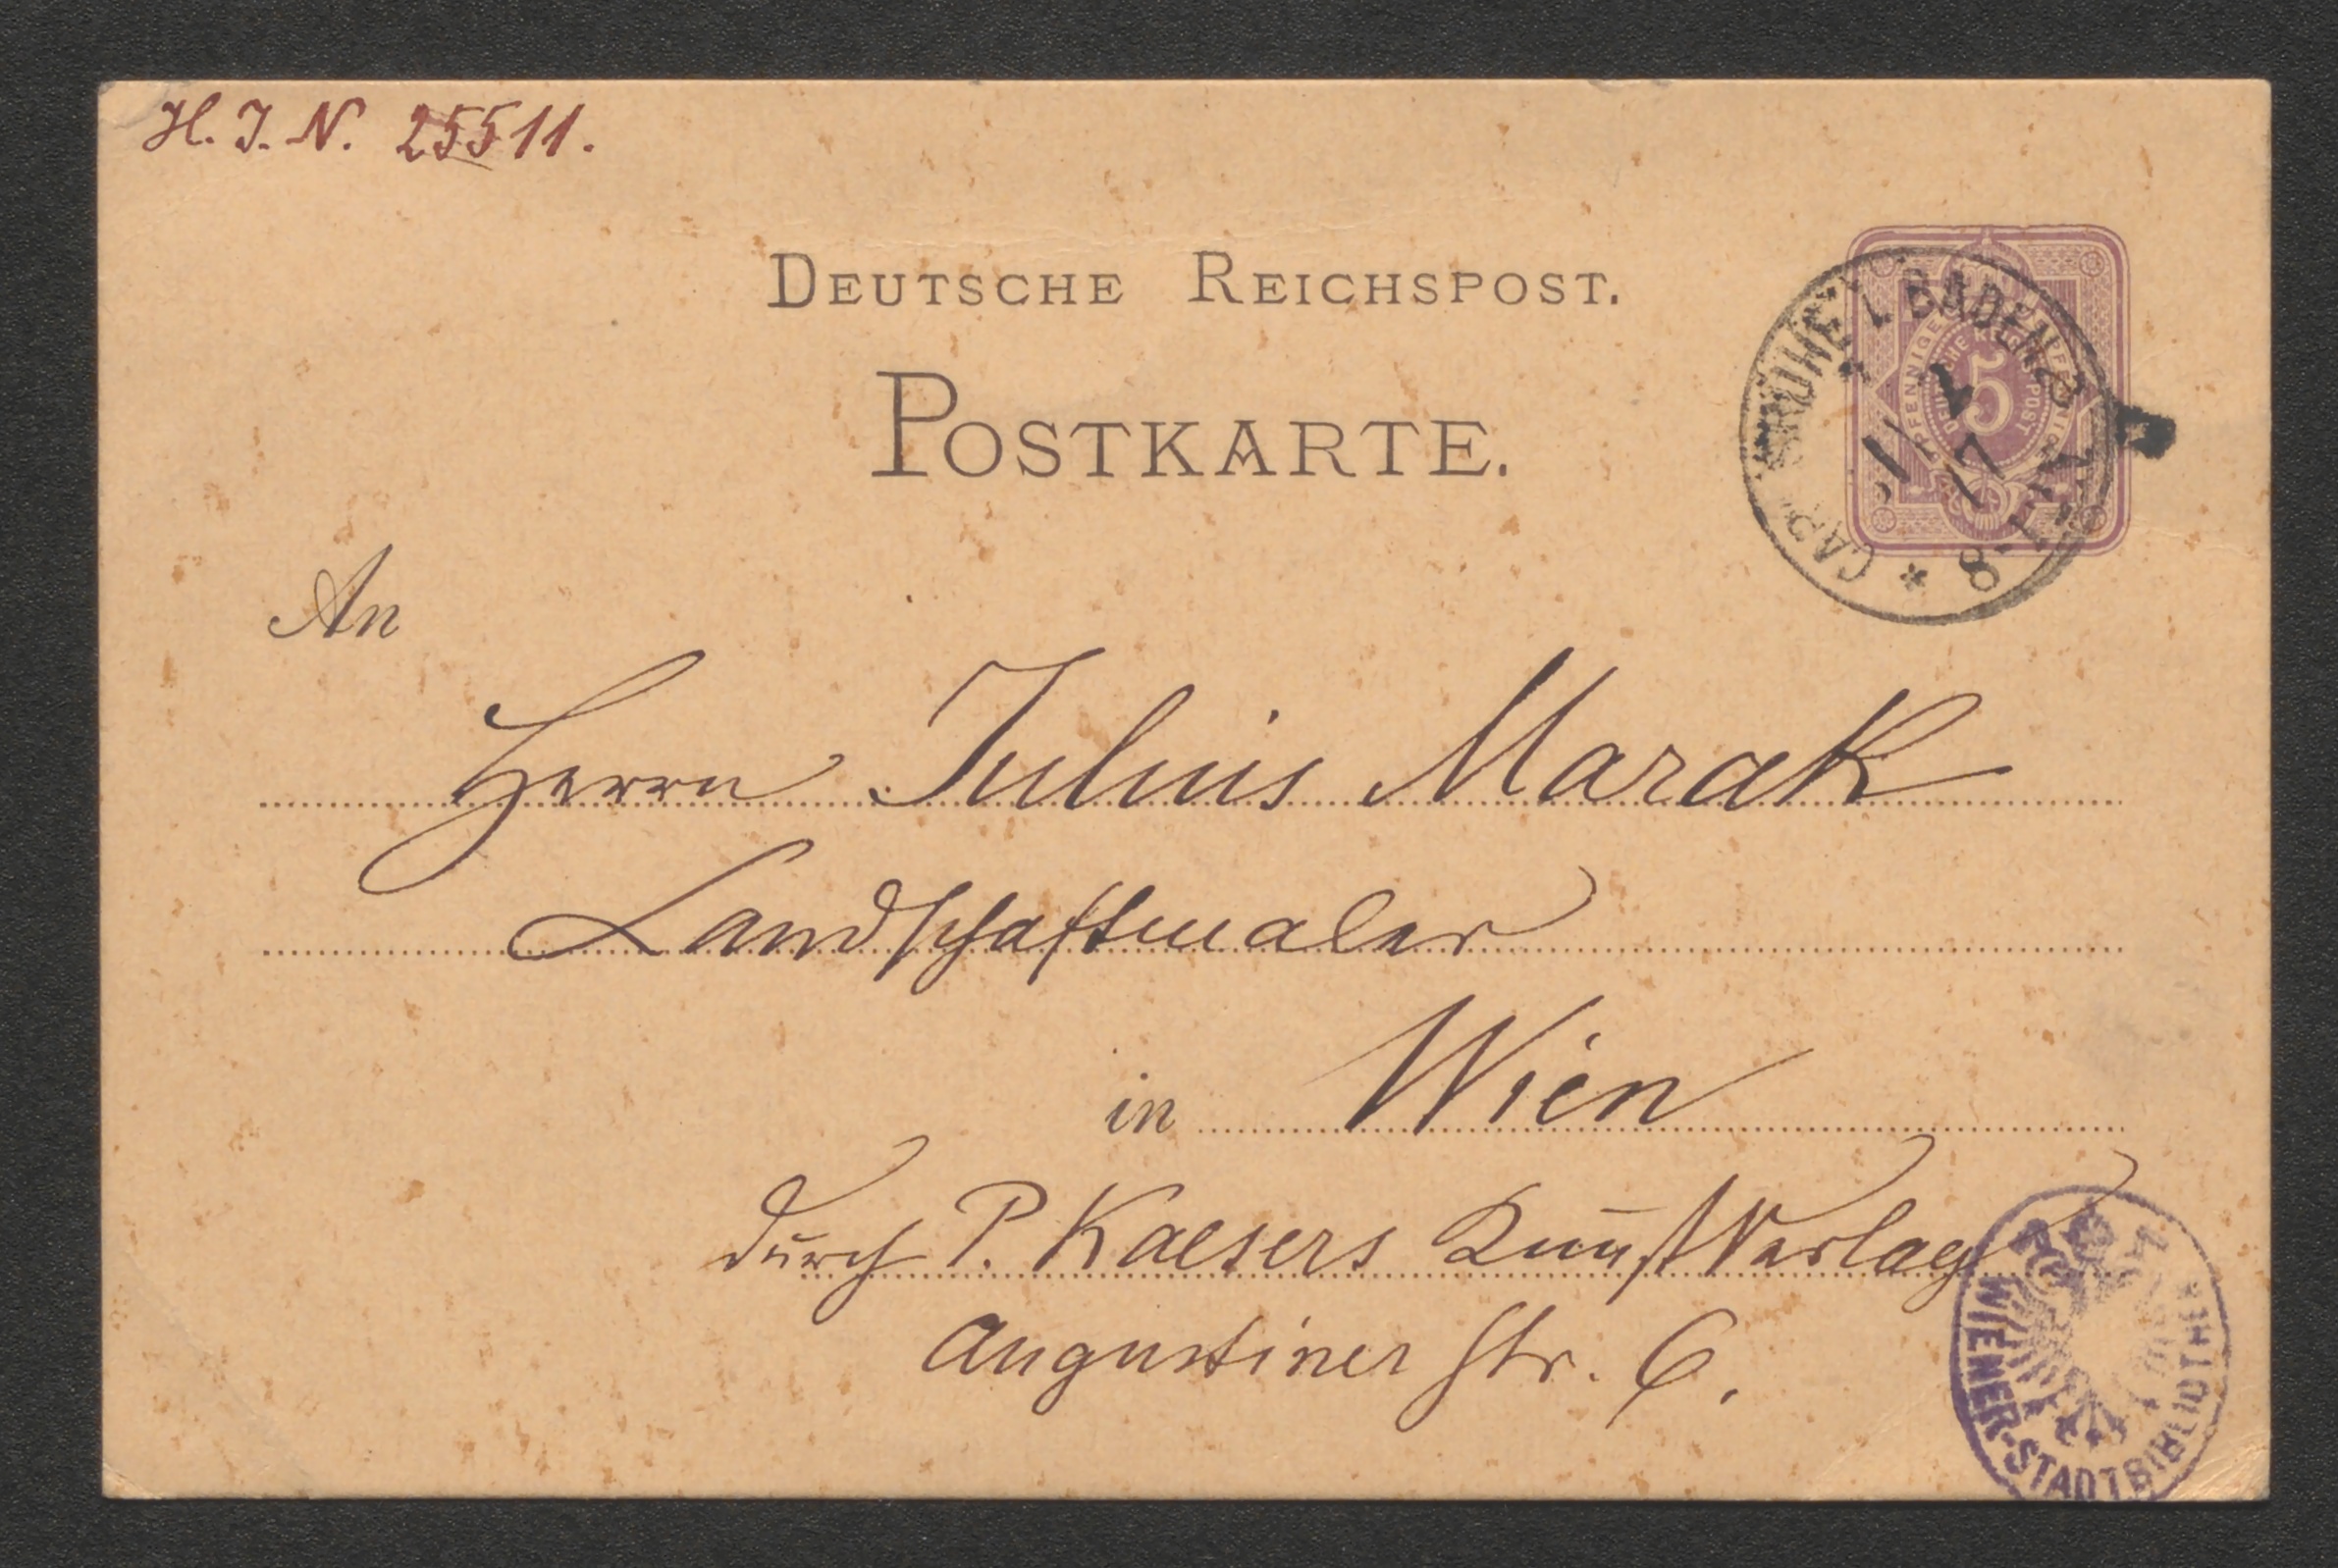 H. I. N. 25511.
DEUTSCHE REICHSPOST.
POSTKARTE.
BADEN
5
An
Herrn Julius Marak
Landschaftmaler
in Wien
durch P. Kaesers Kunst Verlag
Augustiner Str. 6.
WIENER-STADTBIBLIOTHEK